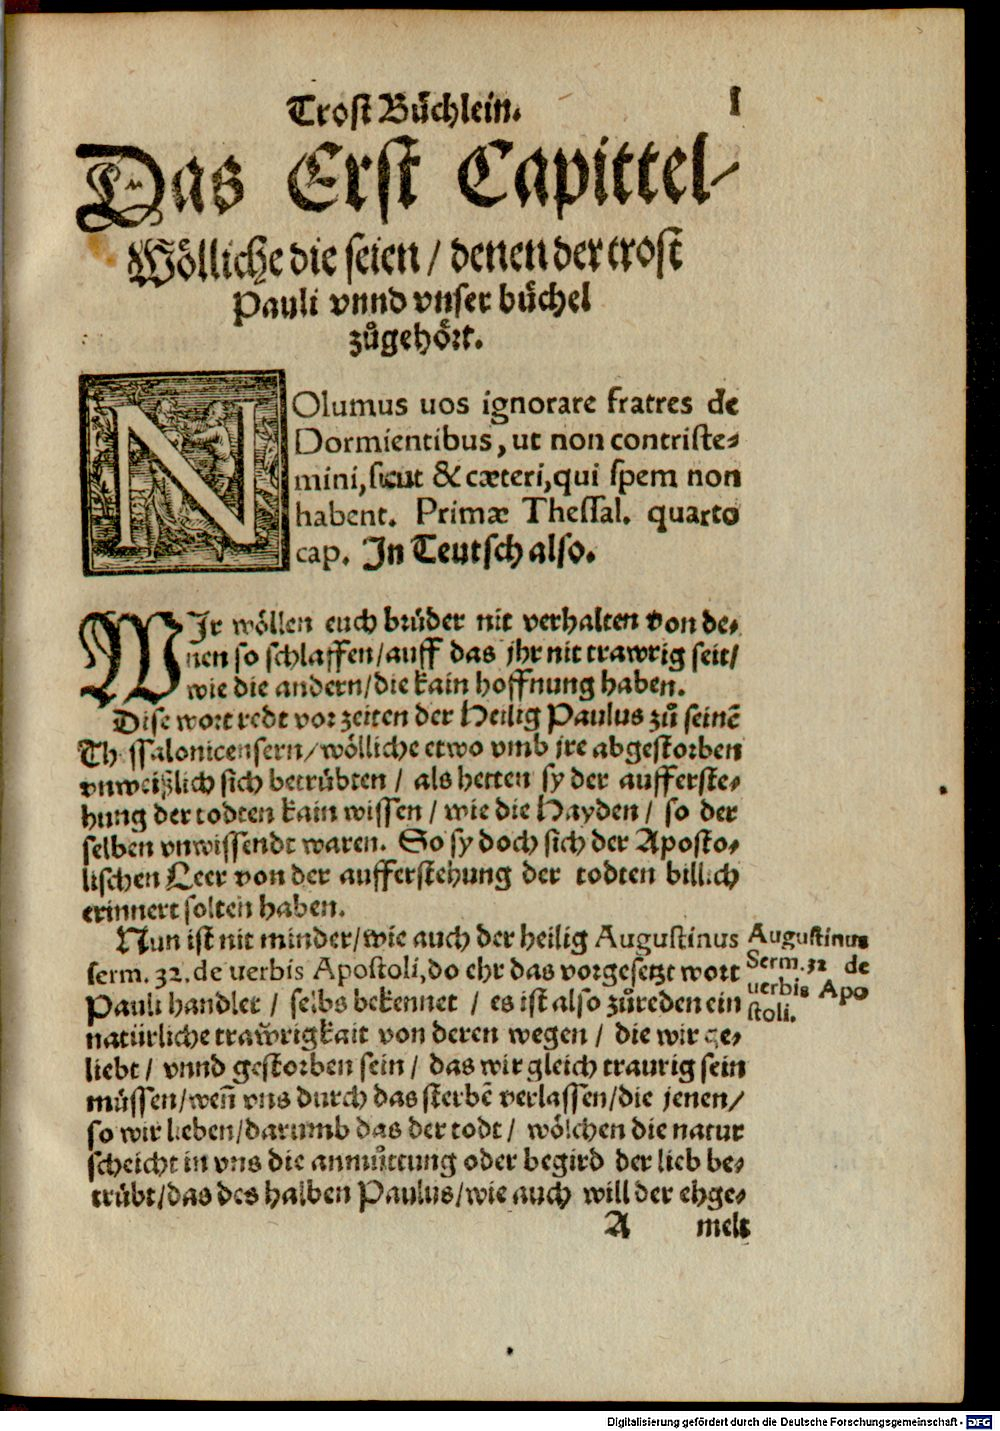 Trost Büchlein. I
Das Erst Capittel/
Wölliche die seien / denen der trost
Pauli vnnd vnser büchel
zůgehört.
NOlumus uos ignorare fratres de
Dormientibus, ut non contriste-
mini, sicut & cæteri, qui spem non
habent. Primæ Thessal. quarto
cap. In Teutsch also.
WIr wöllen euch brüder nit verhalten von de-
nen so schlaffen/auff das jhr nit trawrig seit/
wie die andern/die kain hoffnung haben.
Dise wort redt vor zeiten der Heilig Paulus zů seinē
Thessalonicensern/wölliche etwo vmb jre abgestorben
vnweißlich sich betrübten / als hetten sy der aufferste-
hung der todten kain wissen / wie die Hayden / so der
selben vnwissendt waren. So sy doch sich der Aposto-
lischen Leer von der aufferstehung der todten billich
erinnert solten haben.
Nun ist nit minder/wie auch der heilig Augustinus
serm. 32. de uerbis Apostoli, do ehr das vorgesetzt wort
Pauli handlet / selbs bekennet / es ist also zůreden ein
natürliche traẘrigkait von deren wegen / die wir ge-
liebt / vnnd gestorben sein / das wir gleich traurig sein
müssen/weñ vns durch das sterbē verlassen/die jenen/
so wir lieben/darumb das der todt / wölchen die natur
scheicht in vns die anmůttung oder begird der lieb be-
trübt/das des halben Paulus/wie auch will der ehge-
A melt
Augustinus
Serm. 32 de
uerbis Apo
stoli.
Digitalisierung gefördert durch die Deutsche Forschungsgemeinschaft - DFG